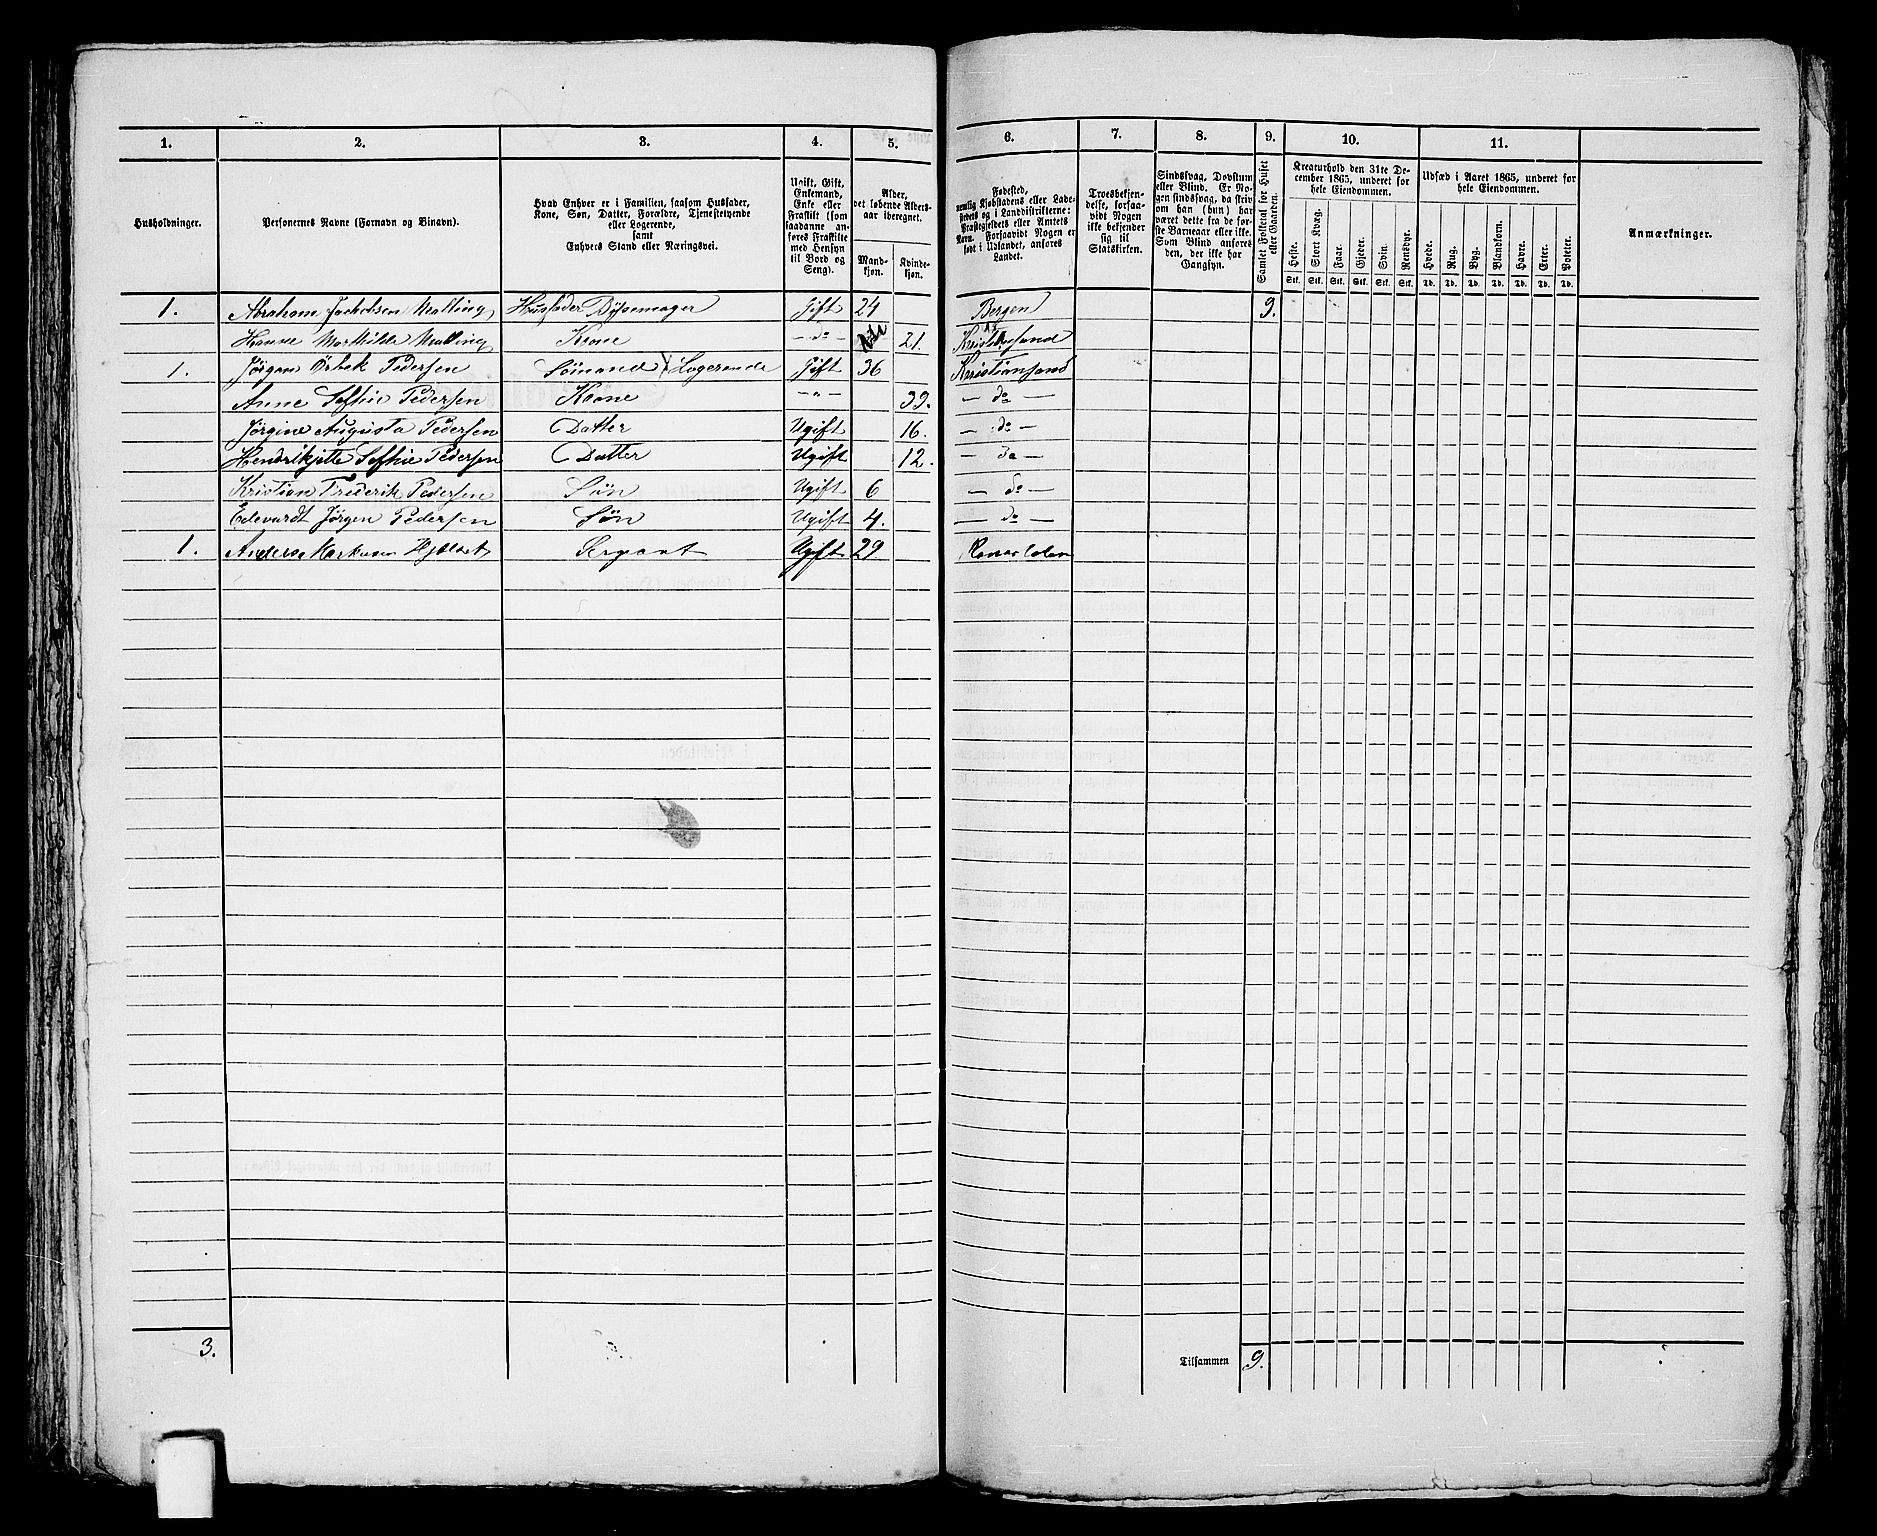 1. 2. 3. 4. 5. 6. 7. 8. 9. 10. 11.
Husholdninger.
Personernes Navne (Fornavn og Binavn).
Hvad Enhver er i Familien, saasom Husfader,
Kone, Søn, Datter, Forældre, Tjenestetyende
eller Logerende,
samt
Enhvers Stand eller Næringsvei.
Ugift, Gift,
Enkemand,
Enke eller
Fraskilt (som
saadanne an-
føres Fraskilte
med Hensyn
til Bord og
Seng).
Alder,
det løbende Alders-
aar iberegnet.
Mand-
kjøn.
Kvinde-
kjøn.
Fødested,
nemlig Kjøbstadens eller Lade-
stedets og i Landdistrikterne:
Præstegjeldets eller Amtets
Navn. Forsaavidt Nogen er
født i Udlandet, anføres
Landet.
Troesbekjen-
delse, forsaa-
vidt Nogen
ikke bekjender
sig til
Statskirken.
Sindssvag, Døvstum
eller Blind. Er No-
gen sindssvag, da skriv
om han (hun) har
været dette fra de før-
ste Barneaar eller ikke.
Som Blind anføres
den, der ikke har
Gangsyn.
Samlet Folketal for Huset
eller Gaarden.
Kreaturhold den 31te De-
cember 1865, underet for
hele Eiendommen.
Heste. Stort Kvæg. Faar. Gjeder. Svin. Rensdyr.
Stk. Stk. Stk. Stk. Stk. Stk.
Udsæd i Aaret 1865, underet for
hele Eiendommen.
Hvede. Rug. Byg. Blandkorn. Havre. Erter. Poteter.
Td. Td. Td. Td. Td. Td. Td.
Anmærkninger.
1. Abraham Jachobsen Malling Husfader Bøssemager Gift 24 Bergen 9.
Hanne Mathilde Malling Kone - do - 21. Kristiansand
1. Jørgen Ørbek Pedersen Sømand Logerende Gift 36 Kristiansand
Anne Sofhie Pedersen Kone - " - 39. - do -
Jørgine Augusta Pedersen Datter Ugift 16. - do -
Hendrikjette Sofhie Pedersen Datter Ugift 12. - do -
Kristian Frederik Pedersen Søn Ugift 6 - do -
Edevardt Jørgen Pedersen Søn Ugift 4. - do -
1. Anders Markusen Sergeant Ugift 29.
3. Tilsammen 9.